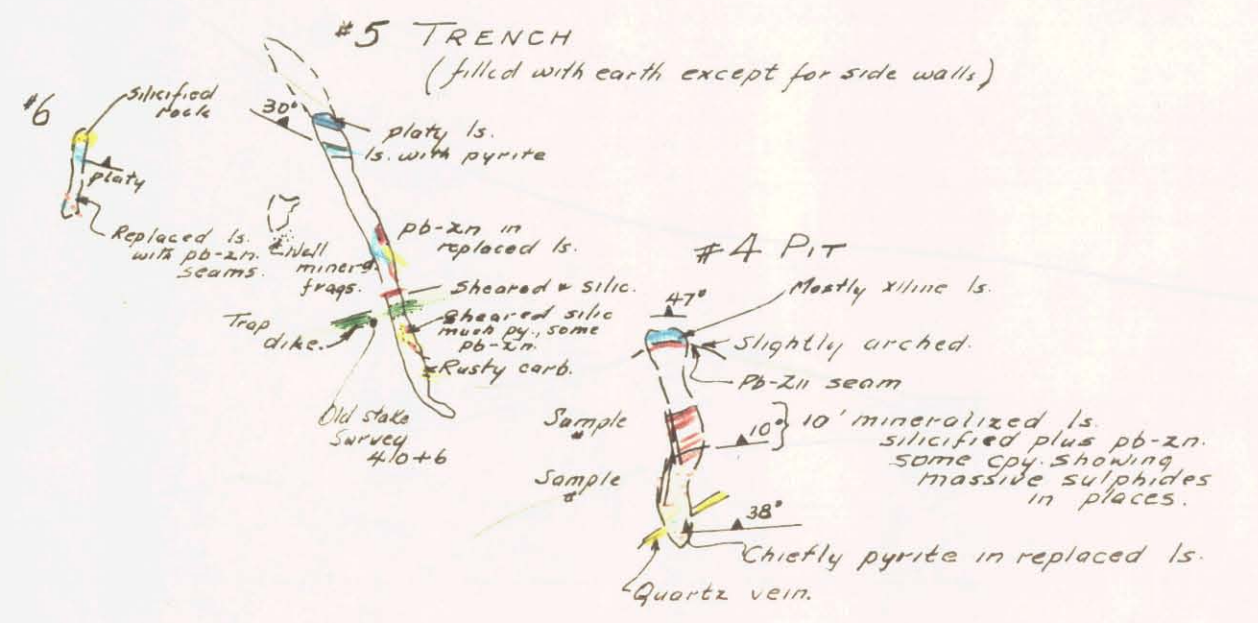 #5 TRENCH
(filled with earth except for side walls)
#6
Silicified
rock
30°
platy ls.
ls. with pyrite
platy
Replaced ls.
with pb-zn.
seams.
Well
minera.
frags.
pb-zn in
replaced ls.
Sheared & silic.
Trap
dike.
Sheared silic
much py., some
pb-zn.
Rusty carb.
Old stake
Survey
40+6
#4 PIT
47°
Mostly xiline ls.
Slightly arched.
Pb-Zn seam
Sample
10°
10' mineralized ls.
silicified plus pb-zn.
some cpy. showing
massive sulphides
in places.
Sample
38°
Chiefly pyrite in replaced ls.
Quartz vein.